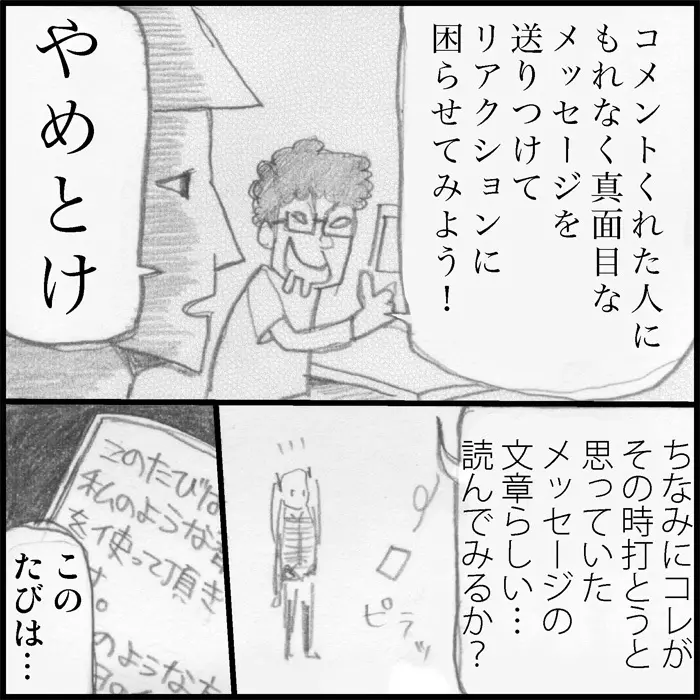 コメントくれた人に
もれなく真面目な
メッセージを
送りつけて
リアクションに
困らせてみよう！
やめとけ
ちなみにコレが
その時打とうと
思っていた
メッセージの
文章らしい…
読んでみるか？
ピラッ
このたびは
私のような
を使って頂き
す。
のような方
このたびは…